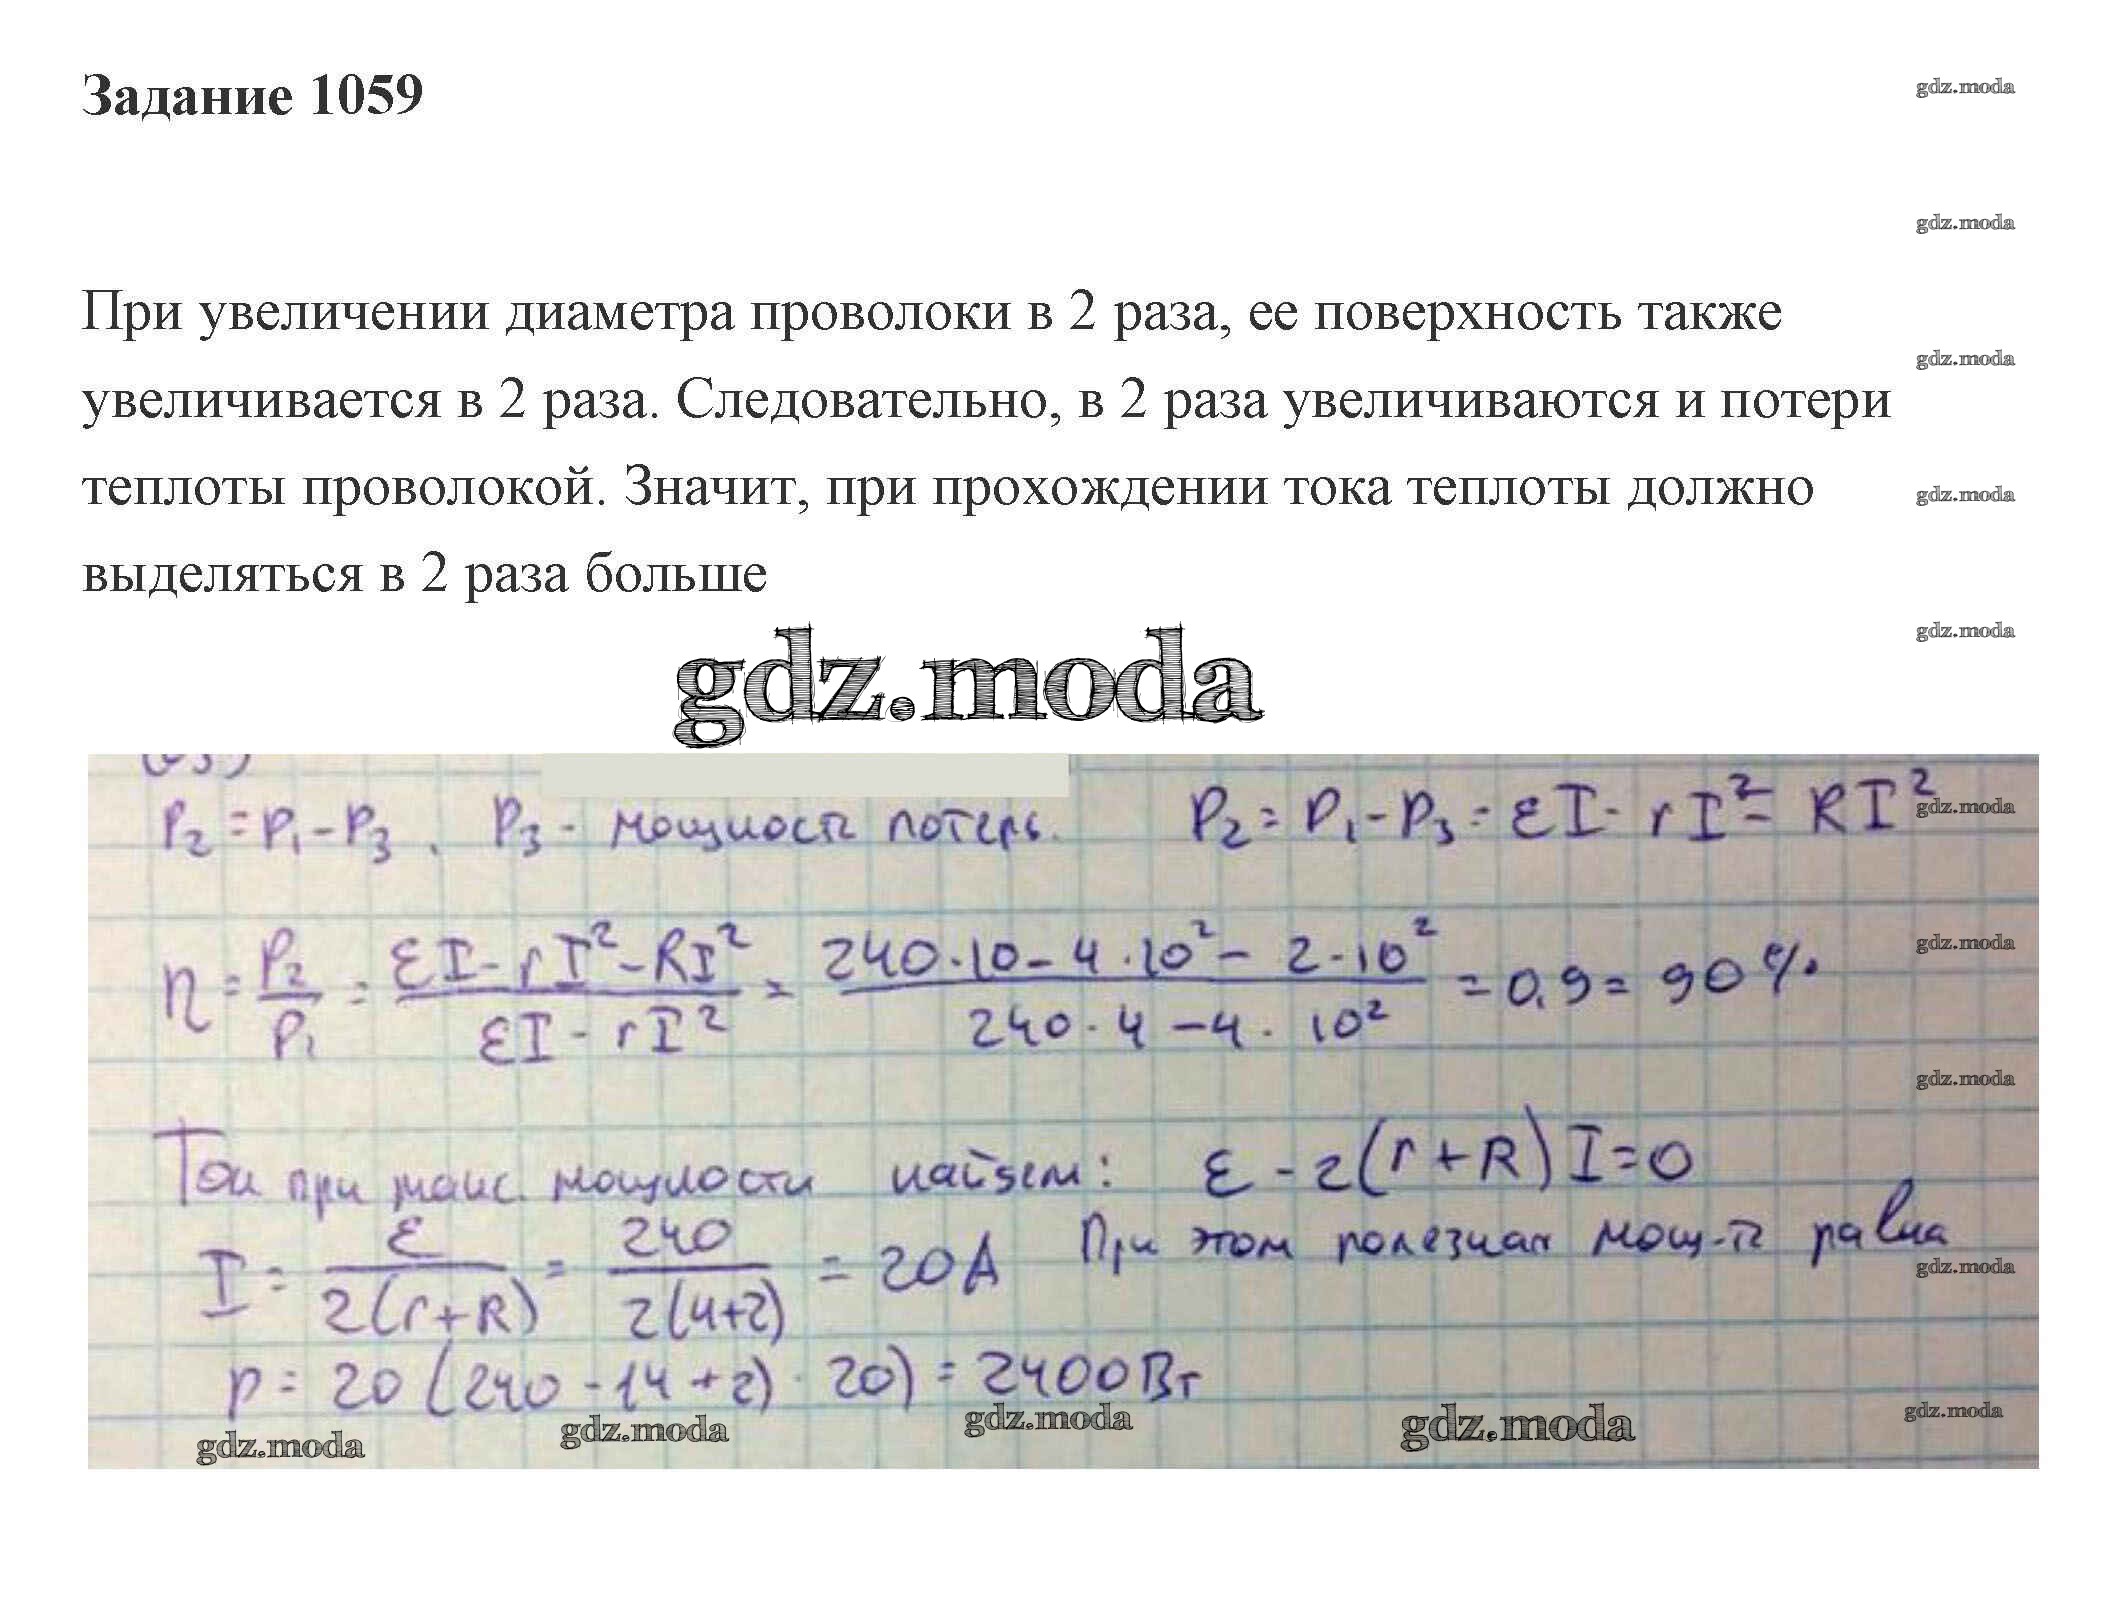 Задание 1059
gdz.moda
gdz.moda
При увеличении диаметра проволоки в 2 раза, ее поверхность также
gdz.moda
увеличивается в 2 раза. Следовательно, в 2 раза увеличиваются и потери
теплоты проволокой. Значит, при прохождении тока теплоты должно
gdz.moda
выделяться в 2 раза больше
gdz.moda
gdz.moda
P₂ = P₁ - P₃, P₃ - мощность потерь. P₂ = P₁ - P₃ = εI - rI² - RI²
gdz.moda
η = P₂/P₁ = (εI - rI² - RI²)/(εI - rI²) = (240·10 - 4·10² - 2·10²)/(240·4 - 4·10²) = 0,9 = 90%
gdz.moda
gdz.moda
Ток при макс. мощности найдем: ε - 2(r+R)I = 0
I = ε/(2(r+R)) = 240/(2(4+2)) = 20А При этом полезная мощ-ть равна
gdz.moda
P = 20(240 - 14+2)·20) = 2400Вт
gdz.moda gdz.moda gdz.moda gdz.moda gdz.moda